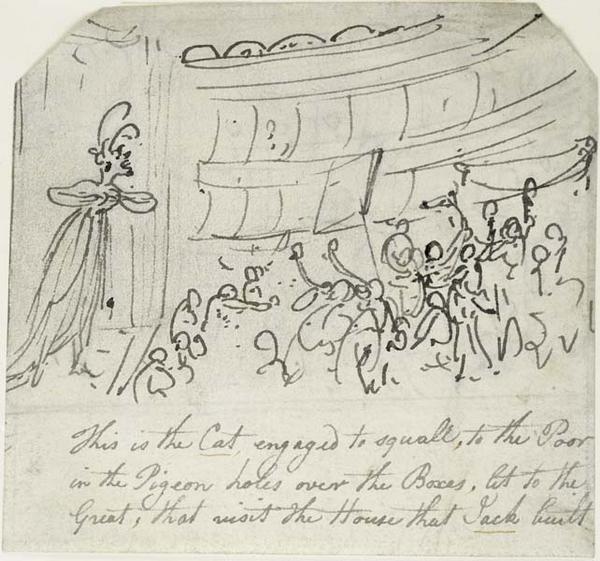 This is the Cat engaged to squall, to the Poor
in the Pigeon holes over the Boxes, let to the
Great, that visit the House that Jack built